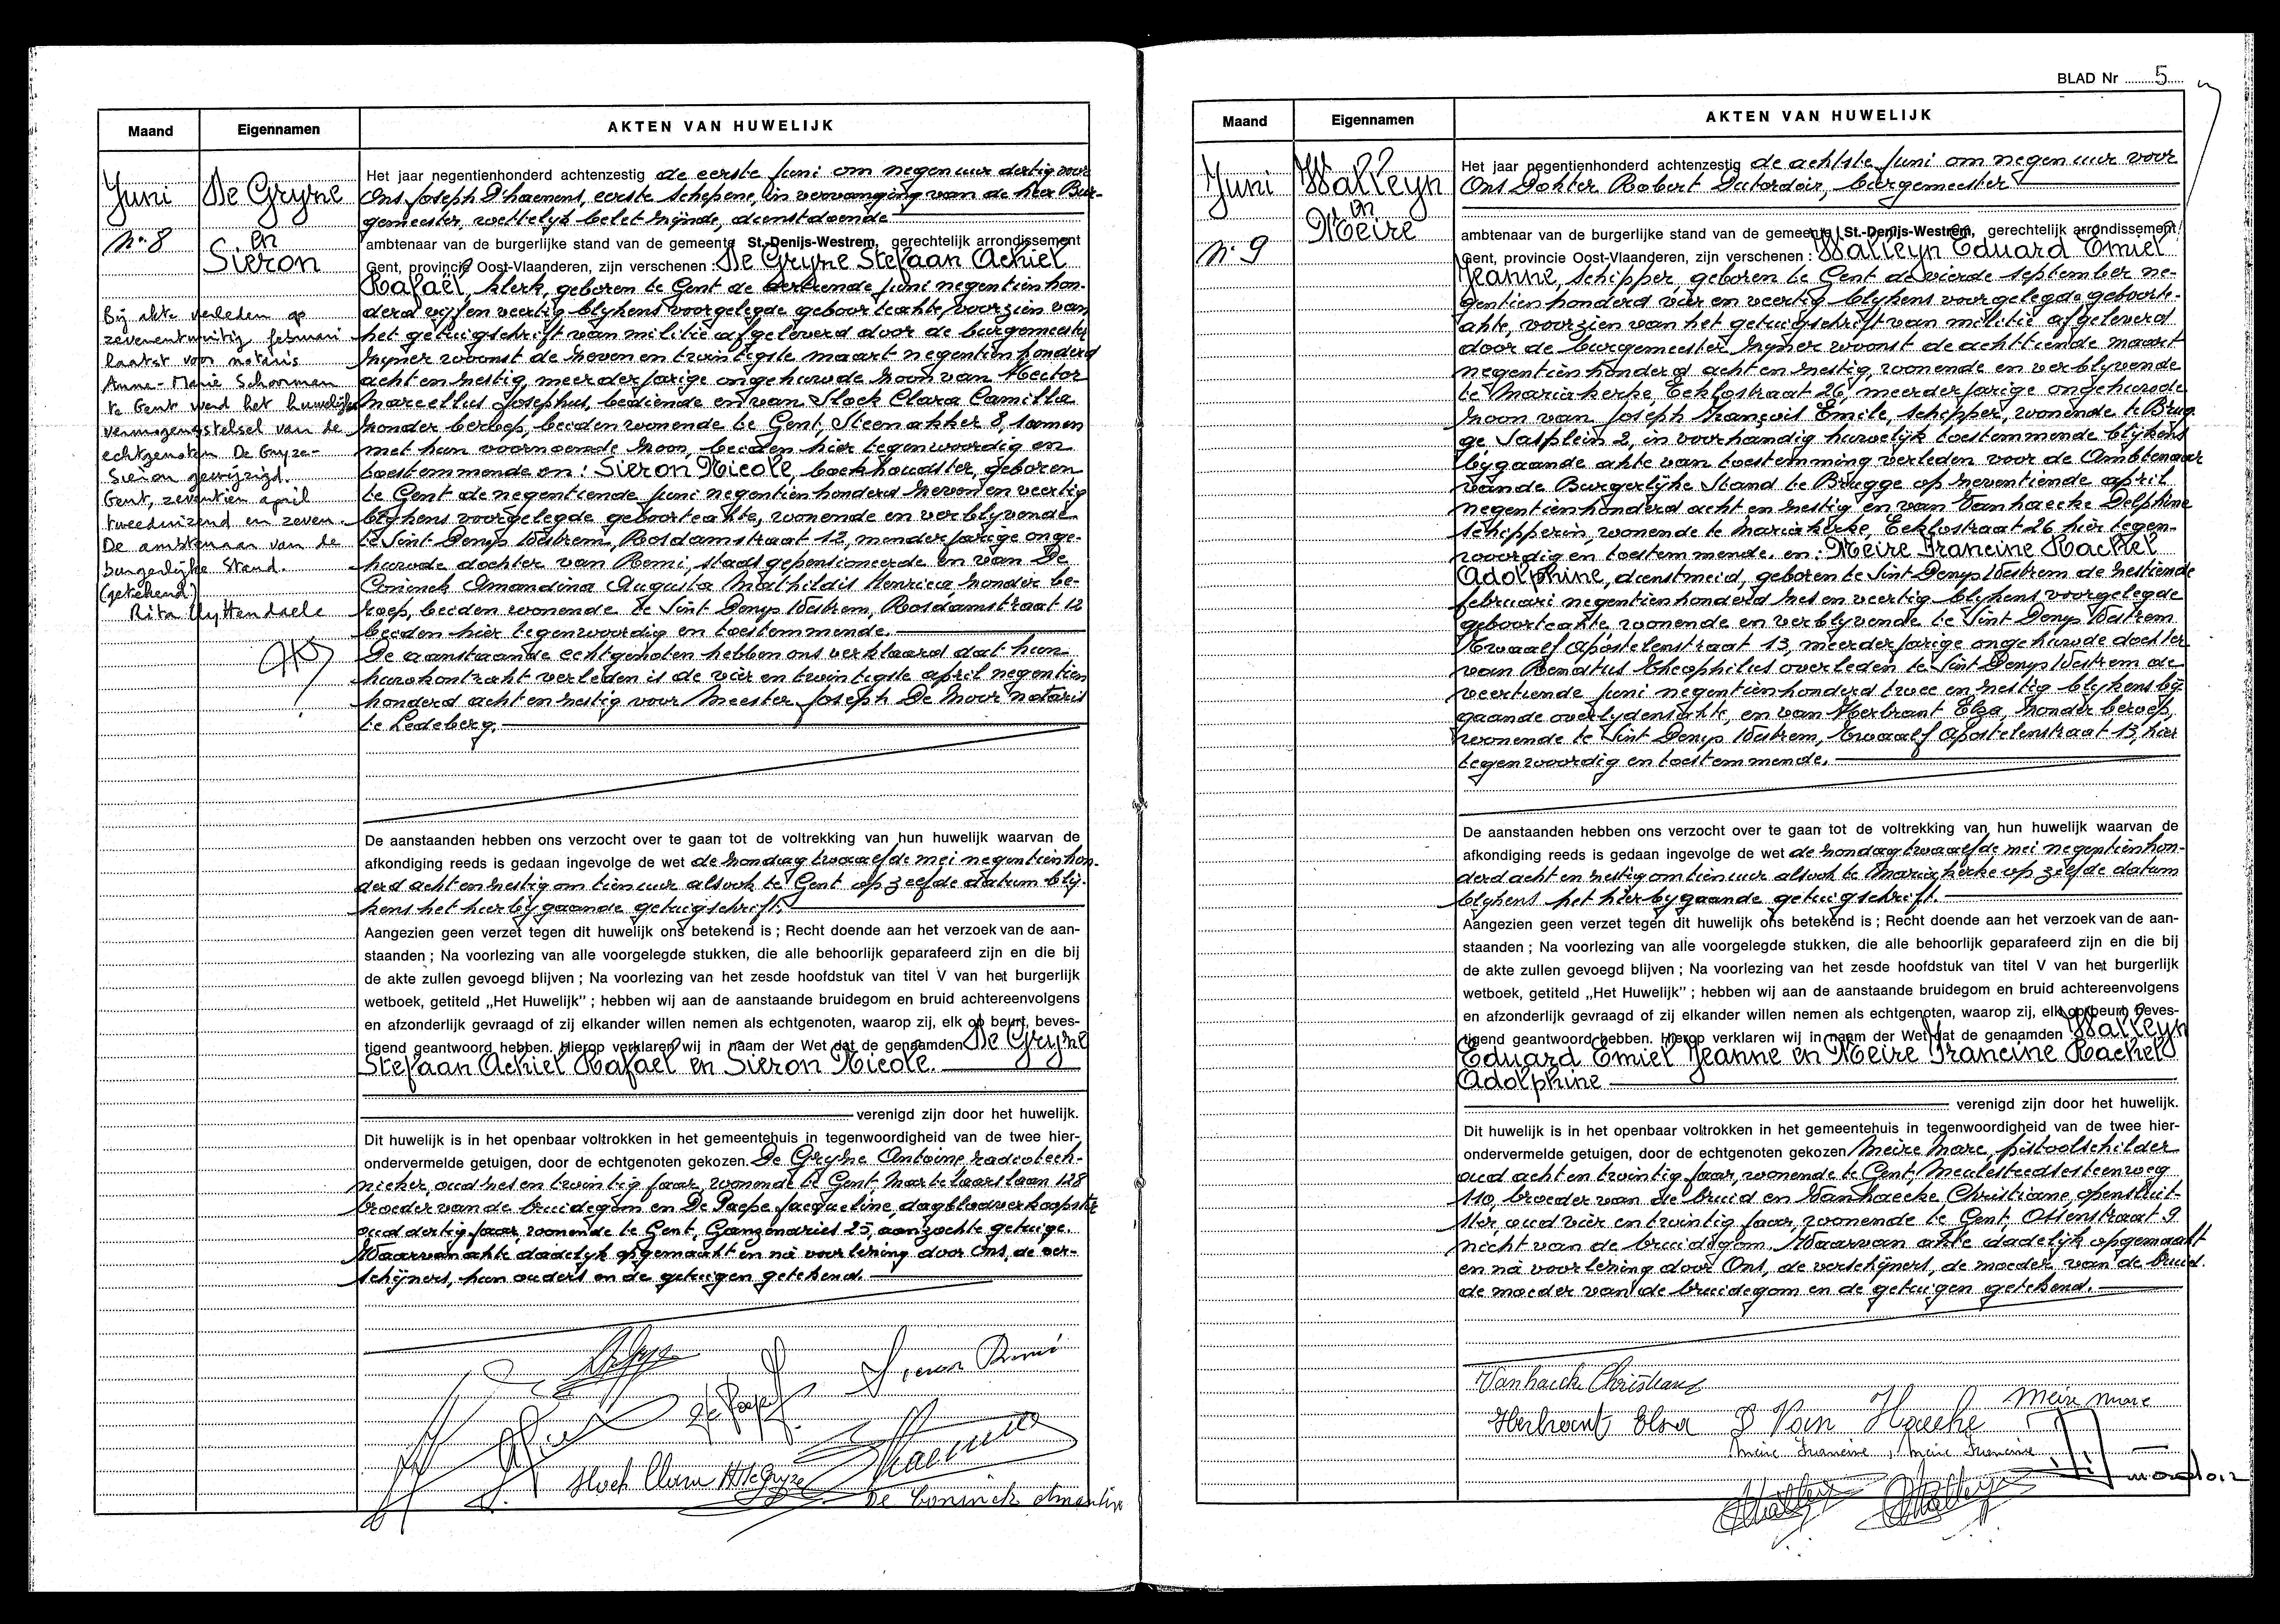 Maand
Eigennamen
AKTEN VAN HUWELIJK
Juni
De Gryze
en
Sieron
No. 8
Bij akte verleden op
zevenentwintig februari
laatst voor notaris
Anne-Marie Schoorman
te Gent werd het huwelijks
vermogensstelsel van de
echtgenoten De Gryze-
Sieron gewijzigd.
Gent, zeventien april
tweeduizend en zeven.
De ambtenaar van de
burgerlijke stand.
(getekend)
Rita Uyttendaele
Het jaar negentienhonderd achtenzestig de eerste juni om negen uur dertig voor
Ons Joseph D'haenens, eerste schepene, in vervanging van de Heer Bur-
gemeester, wettelijk belet zijnde, dienstdoende
ambtenaar van de burgerlijke stand van de gemeente St.-Denijs-Westrem, gerechtelijk arrondissement
Gent, provincie Oost-Vlaanderen, zijn verschenen : De Gryze Stefaan Achiel
Rafaël, klerk, geboren te Gent de juni negentienhon-
derd vijf en veertig blijkens voorgelegde geboorteakte voorzien van
het getuigschrift van militie afgeleverd door de burgemeester
zijner woonst de zeven en twintigste maart negentienhonderd
acht en zestig, meerderjarige ongehuwde zoon van Hector
Marcellus Josephus, bediende en van Stock Clara Camilla
zonder beroep, beiden wonende te Gent, Steenakker 8, samen
met hun voornoemde zoon, beiden hier tegenwoordig en
toestemmende en : Sieron Nicole, boekhoudster, geboren
te Gent de negentiende juni negentienhonderd zeven en veertig
blijkens voorgelegde geboorteakte, wonende en verblyvende
te Sint Denys Westrem, Rosdamstraat 12, minderjarige onge-
huwde dochter van Remi, staatsgepensioneerde en van De
Coninck Amandina Augusta Mathildis Henrica zonder be-
roep, beiden wonende te Sint Denys Westrem, Rosdamstraat 12
beiden hier tegenwoordig en toestemmende.
De aanstaande echtgenoten hebben ons verklaard dat hun
huwkontrakt verleden is de vier en twintigste april negentien
honderd acht en zestig voor Meester Joseph De Moor notaris
te Ledeberg.
De aanstaanden hebben ons verzocht over te gaan tot de voltrekking van hun huwelijk waarvan de
afkondiging reeds is gedaan ingevolge de wet de zondag twaalfde mei negentienhon-
derd acht en zestig om tien uur alsook te Gent op zelfde datum blij-
kens het hierbygaande getuigschrift.
Aangezien geen verzet tegen dit huwelijk ons betekend is ; Recht doende aan het verzoek van de aan-
staanden ; Na voorlezing van alle voorgelegde stukken, die alle behoorlijk geparafeerd zijn en die bij
de akte zullen gevoegd blijven ; Na voorlezing van het zesde hoofdstuk van titel V van het burgerlijk
wetboek, getiteld „Het Huwelijk" ; hebben wij aan de aanstaande bruidegom en bruid achtereenvolgens
en afzonderlijk gevraagd of zij elkander willen nemen als echtgenoten, waarop zij, elk op beurt, beves-
tigend geantwoord hebben. Hierop verklaren wij in naam der Wet dat de genaamden De Gryze
Stefaan Achiel Rafaël en Sieron Nicole.
verenigd zijn door het huwelijk.
Dit huwelijk is in het openbaar voltrokken in het gemeentehuis in tegenwoordigheid van de twee hier-
ondervermelde getuigen, door de echtgenoten gekozen. De Gryze Antoine radiotech-
nieker, oud zes en twintig jaar, wonende te Gent, Martelaarslaan 128
broeder van de bruidegom en De Paepe Jacqueline, dagbladverkoopster
oud dertig jaar, wonende te Gent, Ganzendries 25, aanzochte getuige.
Waarvan akte dadelyk opgemaakt en na voorlezing door Ons, de ver-
schijners, hun ouders en de getuigen getekend.
Sieron Remi
De Paepe J.
Stock Clara H De Gryze
De Coninck Amandina
BLAD Nr 5
Maand
Eigennamen
AKTEN VAN HUWELIJK
Juni
Walleyn
en
Meire
No. 9
Het jaar negentienhonderd achtenzestig de achtste juni om negen uur voor
Ons Dokter Robert Dutordoir, burgemeester
ambtenaar van de burgerlijke stand van de gemeente St.-Denijs-Westrem, gerechtelijk arrondissement
Gent, provincie Oost-Vlaanderen, zijn verschenen : Walleyn Eduard Emiel
Jeanne, schipper, geboren te Gent de vierde september ne-
gentienhonderd vier en veertig blijkens voorgelegde geboorte-
akte, voorzien van het getuigschrift van militie afgeleverd
door de burgemeester zijner woonst de achttiende maart
negentienhonderd acht en zestig, wonende en verblyvende
te Mariakerke, Eeklostraat 26, meerderjarige ongehuwde
zoon van Joseph François Emile, schipper, wonende te Brug-
ge Sasplein 2, in voorhandig huwelijk toestemmende blijkens
bijgaande akte van toestemming verleden voor de Ambtenaar
van de Burgerlijke Stand te Brugge op zeventiende april
negentienhonderd acht en zestig en van Vanhaecke Delphine
schipperin, wonende te Mariakerke, Eeklostraat 26 hier tegen-
woordig en toestemmende. en : Meire Francine Rachel
Adolphine, dienstmeid, geboren te Sint Denys Westrem de zestiende
februari negentienhonderd zes en veertig blijkens voorgelegde
geboorteakte wonende en verblyvende te Sint Denys Westrem
Twaalf Apostelenstraat 13, meerderjarige ongehuwde dochter
van Renatus Theophilus overleden te Sint Denys Westrem de
veertiende juni negentienhonderd twee en zestig blijkens bij-
gaande overlydensakte, en van Herbrant Elza, zonder beroep,
wonende te Sint Denys Westrem, Twaalf Apostelenstraat 13, hier
tegenwoordig en toestemmende.
De aanstaanden hebben ons verzocht over te gaan tot de voltrekking van hun huwelijk waarvan de
afkondiging reeds is gedaan ingevolge de wet de zondag twaalfde mei negentienhon-
derd acht en zestig om tien uur alsook te Mariakerke op zelfde datum
blijkens het hierbygaande getuigschrift.
Aangezien geen verzet tegen dit huwelijk ons betekend is ; Recht doende aan het verzoek van de aan-
staanden ; Na voorlezing van alle voorgelegde stukken, die alle behoorlijk geparafeerd zijn en die bij
de akte zullen gevoegd blijven ; Na voorlezing van het zesde hoofdstuk van titel V van het burgerlijk
wetboek, getiteld „Het Huwelijk" ; hebben wij aan de aanstaande bruidegom en bruid achtereenvolgens
en afzonderlijk gevraagd of zij elkander willen nemen als echtgenoten, waarop zij, elk op beurt, beves-
tigend geantwoord hebben. Hierop verklaren wij in naam der Wet dat de genaamden Walleyn
Eduard Emiel Jeanne en Meire Francine Rachel
Adolphine
verenigd zijn door het huwelijk.
Dit huwelijk is in het openbaar voltrokken in het gemeentehuis in tegenwoordigheid van de twee hier-
ondervermelde getuigen, door de echtgenoten gekozen Meire Marc, pistoolschilder
oud acht en twintig jaar, wonende te Gent, Meulesteedsesteenweg
110, broeder van de bruid en Vanhaecke Christiane, opensluit-
ster oud vier en twintig jaar, wonende te Gent, Ottenstraat 9
nicht van de bruidegom. Waarvan akte dadelijk opgemaakt
en na voorlezing door Ons, de verschijners, de moeder van de bruid.
de moeder van de bruidegom en de getuigen getekend.
Vanhaecke Christiane
Meire Marc
Herbrant Elza D Van Haecke
Meire Francine, Meire Francine